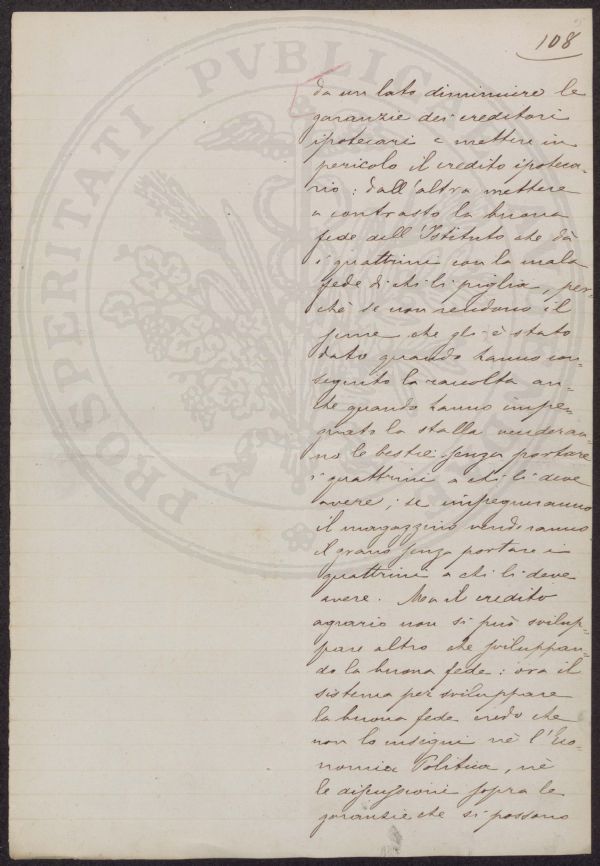 108
da un lato diminuire le
garanzie dei creditori
ipotecari e mettere in
pericolo il credito ipoteca-
rio; dall'altra mettere
a contrasto la buona
fede dell'Istituto che dà
i quattrini con la mala
fede di chi li piglia, per-
chè se non rendono il
seme che gli è stato
dato quando hanno con-
seguito la raccolta an-
che quando hanno impe-
gnato la stalla venderan-
no le bestie senza portare
i quattrini a chi li deve
avere; se impegneranno
il magazzino venderanno
il grano senza portare i
quattrini a chi li deve
avere. Ma il credito
agrario non si può svilup-
pare altro che sviluppan-
do la buona fede: ora il
sistema per sviluppare
la buona fede credo che
non lo insegni nè l'Eco-
nomia Politica, nè
le discussioni sopra le
garanzie che si possono
PROSPERITATI PVBLICAE